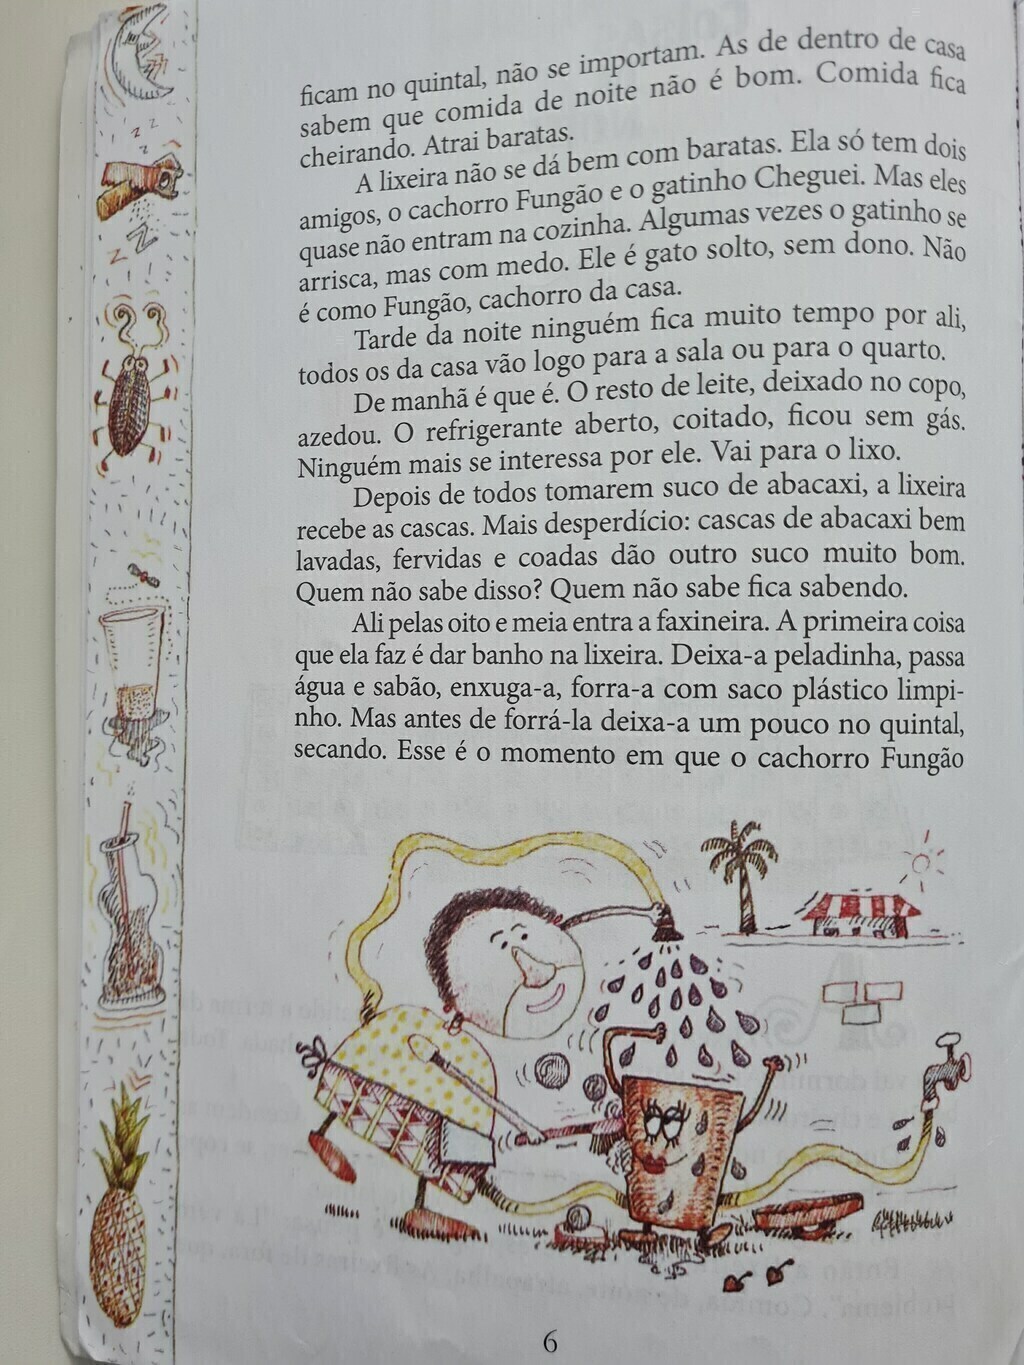 ficam no quintal, não se importam. As de dentro de casa
sabem que comida de noite não é bom. Comida fica
cheirando. Atrai baratas.
A lixeira não se dá bem com baratas. Ela só tem dois
amigos, o cachorro Fungão e o gatinho Cheguei. Mas eles
quase não entram na cozinha. Algumas vezes o gatinho se
arrisca, mas com medo. Ele é gato solto, sem dono. Não
é como Fungão, cachorro da casa.
Tarde da noite ninguém fica muito tempo por ali,
todos os da casa vão logo para a sala ou para o quarto.
De manhã é que é. O resto de leite, deixado no copo,
azedou. O refrigerante aberto, coitado, ficou sem gás.
Ninguém mais se interessa por ele. Vai para o lixo.
Depois de todos tomarem suco de abacaxi, a lixeira
recebe as cascas. Mais desperdício: cascas de abacaxi bem
lavadas, fervidas e coadas dão outro suco muito bom.
Quem não sabe disso? Quem não sabe fica sabendo.
Ali pelas oito e meia entra a faxineira. A primeira coisa
que ela faz é dar banho na lixeira. Deixa-a peladinha, passa
água e sabão, enxuga-a, forra-a com saco plástico limpi-
nho. Mas antes de forrá-la deixa-a um pouco no quintal,
secando. Esse é o momento em que o cachorro Fungão
z z
z
z
z
6